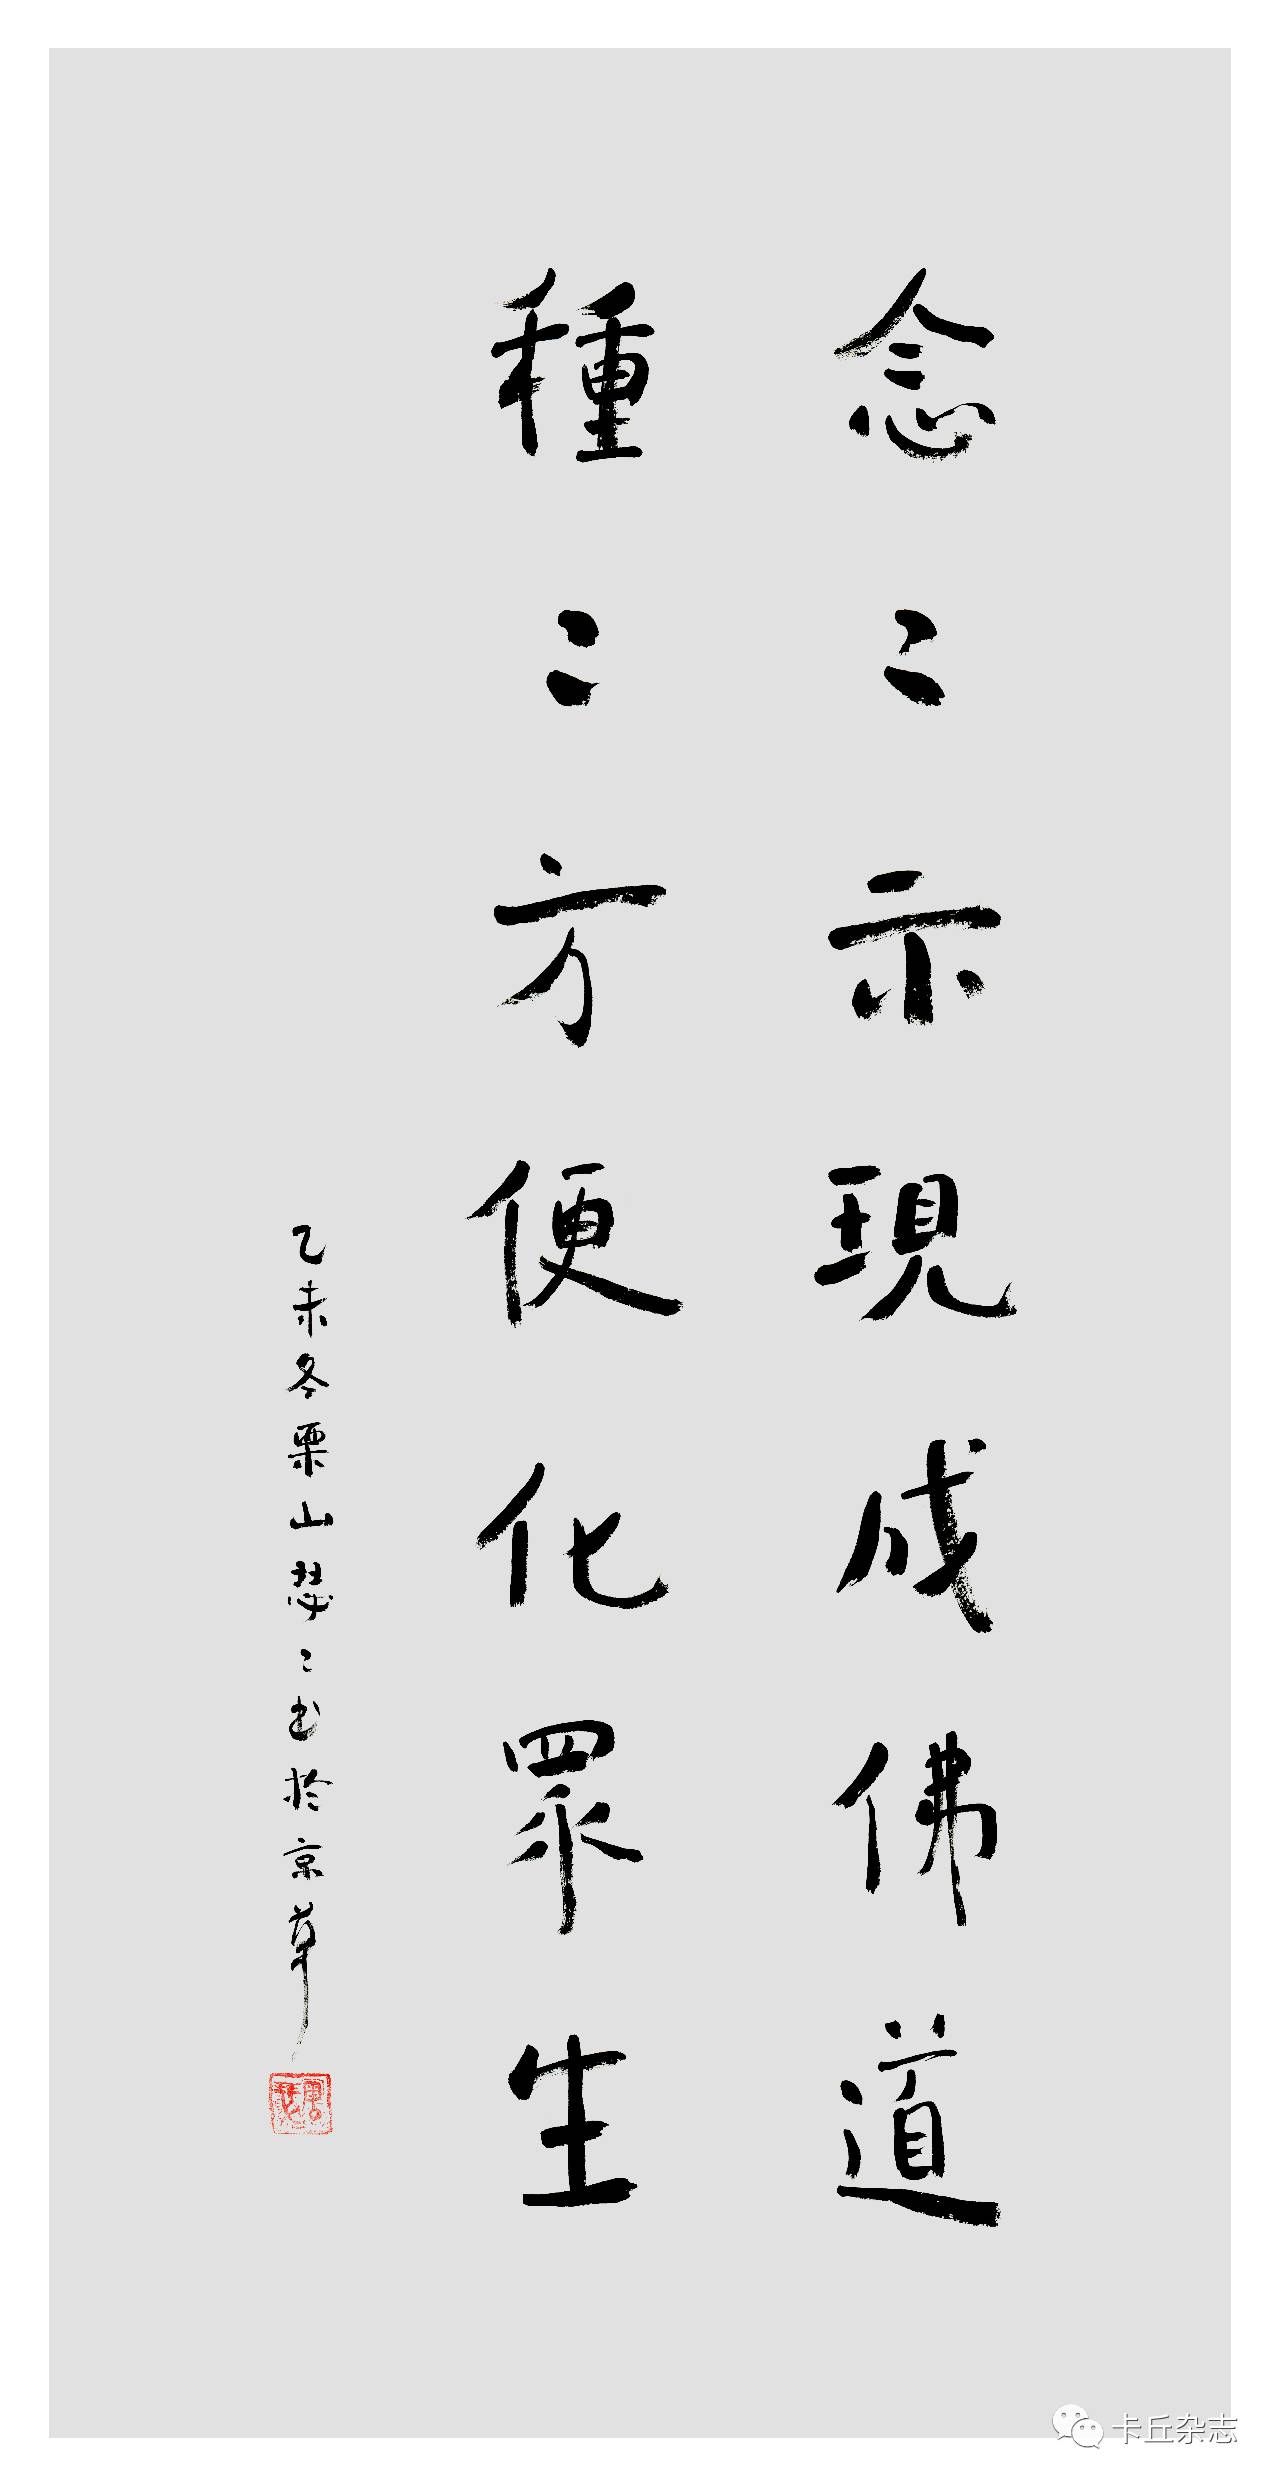 念〻示現成佛道
種〻方便化眾生
乙未冬栗山瑟〻书於京華
卡丘杂志